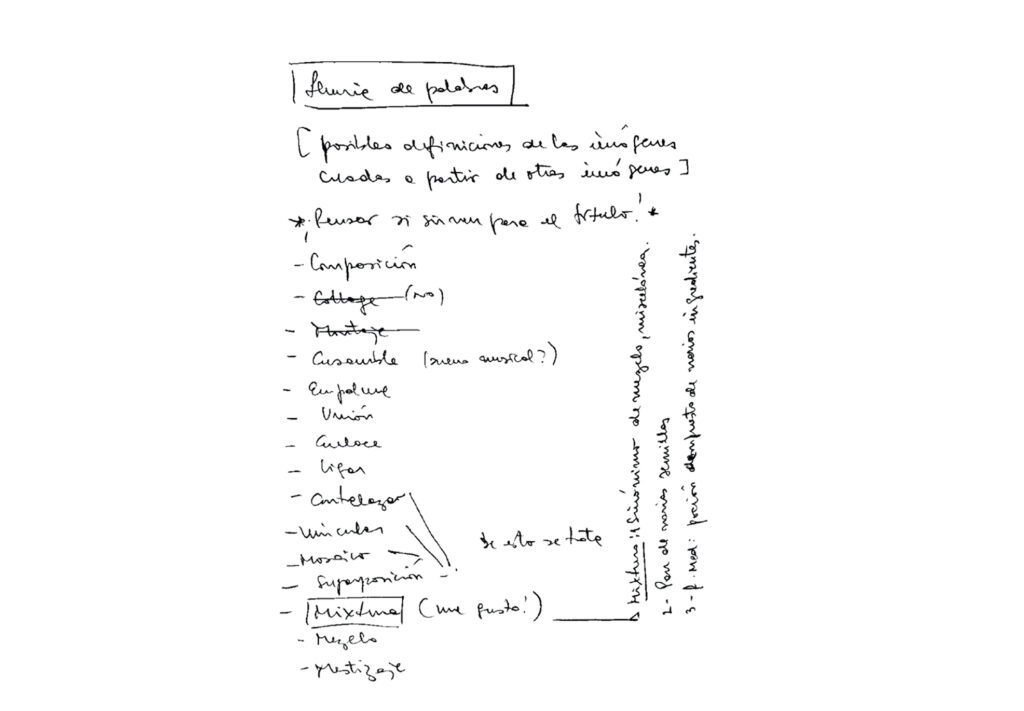 lluvia de palabras
[posibles definiciones de las imágenes
creadas a partir de otras imágenes]
*¡Pensar si sirven para el título!*
- Composición
- Collage (no)
- Montaje
- Ensamble (suena musical?)
- Empalme
- Unión
- Enlace
- Ligar
- Entrelazar
- Vincular
- Mosaico
- Superposición
de esto se trata
- Mixtura (me gusta!)
- Mezcla
- Mestizaje
Mixtura: 1 Sinónimo de mezcla, miscelánea.
2- Pan de varias semillas
3- f. Med: poción compuesta de varios ingredientes.